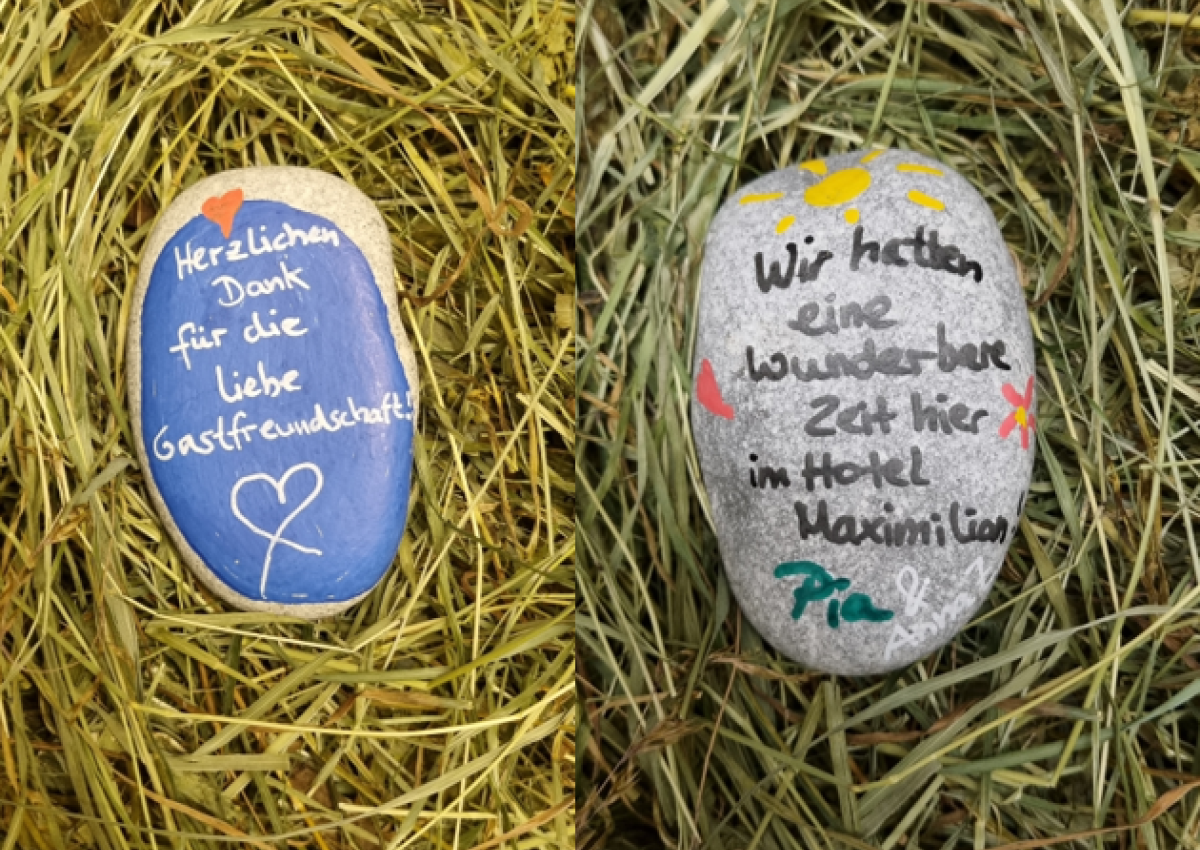 Herzlichen
Dank
für die
liebe
Gastfreundschaft!
Wir hatten
eine
wunderbare
Zeit hier
im Hotel
Maximilian!
Pia &